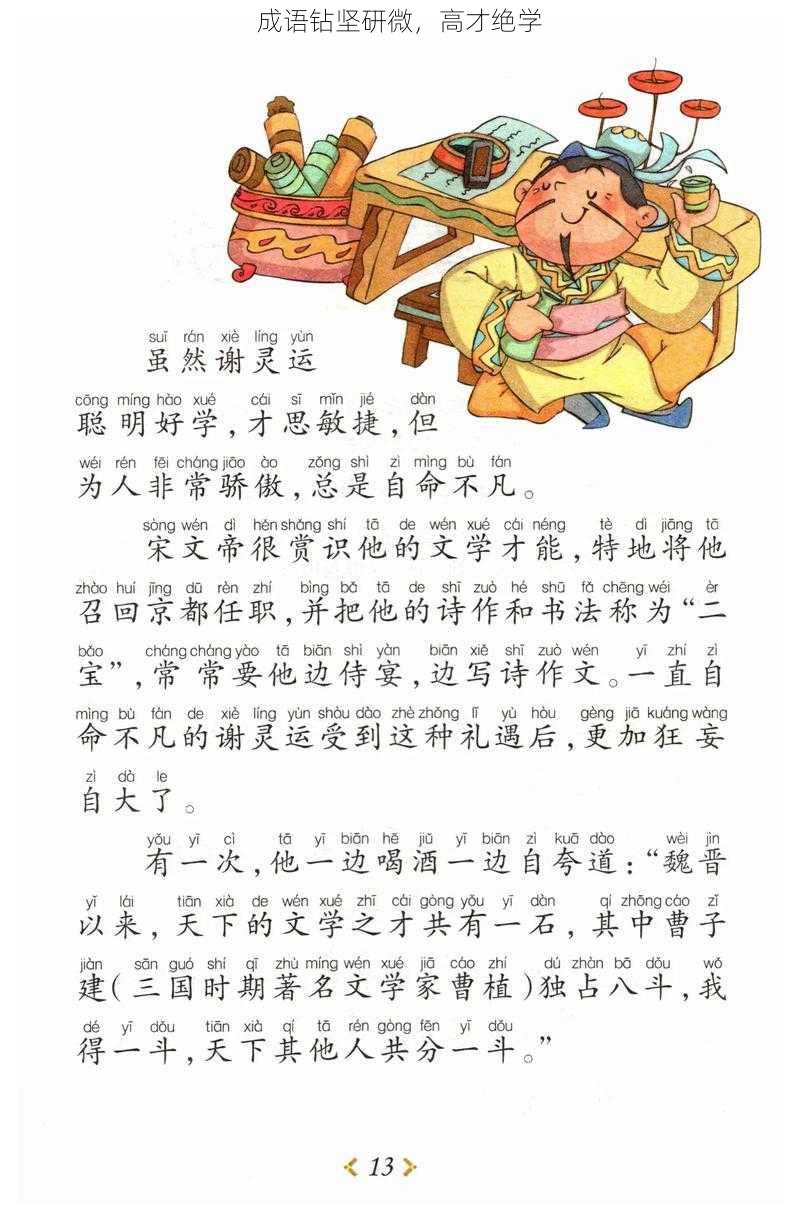 成语钻坚研微，高才绝学
suī rán xiè líng yùn
虽然谢灵运
cōng míng hào xué cái sī mǐn jié dàn
聪明好学，才思敏捷，但
wéi rén fēi cháng jiāo ào zǒng shì zì mìng bù fán
为人非常骄傲，总是自命不凡。
sòng wén dì hěn shǎng shí tā de wén xué cái néng tè dì jiāng tā
宋文帝很赏识他的文学才能，特地将他
zhào huí jīng dū rèn zhí bìng bǎ tā de shī zuò hé shū fǎ chēng wéi èr
召回京都任职，并把他的诗作和书法称为“二
bǎo cháng cháng yào tā biān shì yàn biān xiě shī zuò wén yī zhí zì
宝”，常常要他边侍宴，边写诗作文。一直自
mìng bù fán de xiè líng yùn shòu dào zhè zhǒng lǐ yù hòu gèng jiā kuáng wàng
命不凡的谢灵运受到这种礼遇后，更加狂妄
zì dà le
自大了。
yǒu yī cì tā yī biān hē jiǔ yī biān zì kuā dào wèi jìn
有一次，他一边喝酒一边自夸道：“魏晋
yǐ lái tiān xià de wén xué zhī cái gòng yǒu yī dàn qí zhōng cáo zǐ
以来，天下的文学之才共有一石，其中曹子
jiàn sān guó shí qī zhù míng wén xué jiā cáo zhí dú zhàn bā dǒu wǒ
建（三国时期著名文学家曹植）独占八斗，我
dé yī dǒu tiān xià qí tā rén gòng fēn yī dǒu
得一斗，天下其他人共分一斗。”
13